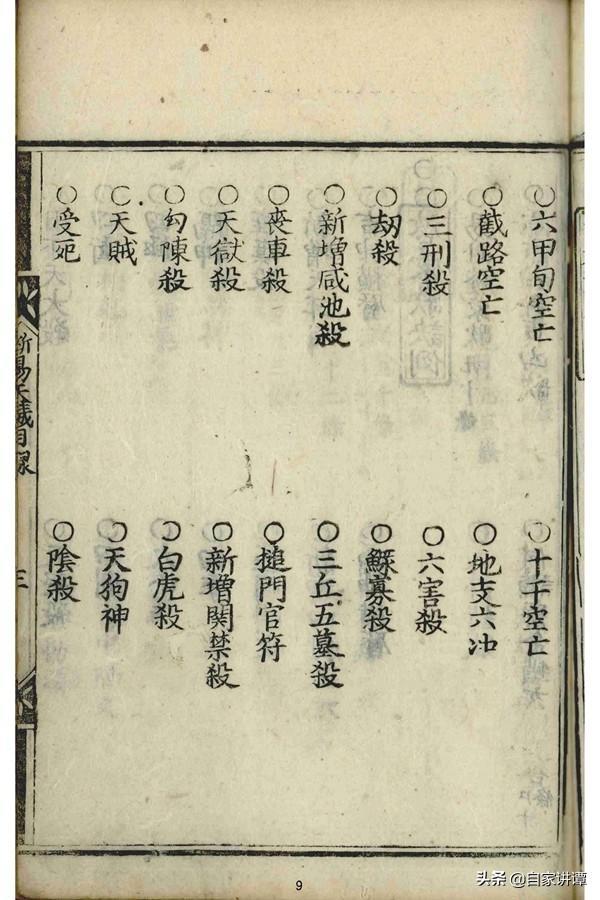 ○六甲旬空亡 ○十干空亡
○截路空亡 ○地支六冲
○三刑殺 ○六害殺
○劫殺 ○鰥寡殺
○新增咸池殺 ○三丘五墓殺
○喪車殺 ○搥門官符
○天獄殺 ○新增関禁殺
○勾陳殺 ○白虎殺
○天賊 ○天狗神
○受死 ○陰殺
断易天機目録 三
9
头条 @自家讲谭